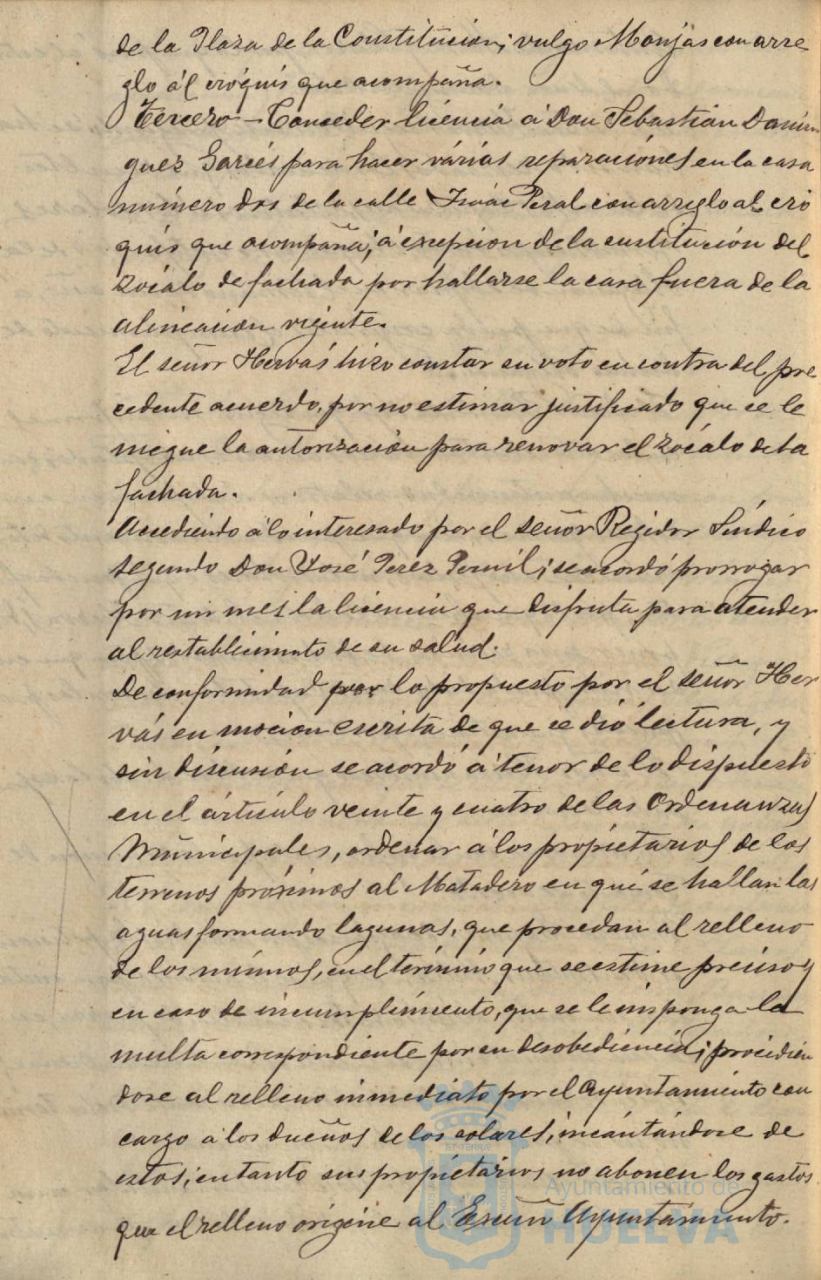 de la Plaza de la Constitución; vulgo Monjas con arre
glo ál cróquis que acompaña.
Tercero - Conceder licencia á Don Sebastián Domín
guez Garcés para hacer várias reparaciónes en la casa
número dos de la calle Isaác Peral con arreglo al cró
quis que acompaña; á excepcion de la sustitución del
zócalo de fachada por hallarse la casa fuera de la
alineacion vigente.
El señor Hervás hizo constar su voto en contra del pre
cedente acuerdo, por no estimar justificado que se le
niegue la autorización para renovar el zócalo de la
fachada.
Accediendo á lo interesado por el señor Regidor Síndico
segundo Don José Perez Pernil; se acordó prorrogar
por un mes la licencia que disfruta para atender
al restablecimiento de su salud.
De conformidad por lo propuesto por el señor Her
vás en mocion escrita de que se dió lectura, y
sin discusión se acordó á tenor de lo dispuesto
en el ártículo veinte y cuatro de las Ordenanzas
Municipales, ordenar á los propietarios de los
terrenos próximos al Matadero en qué se hallan las
aguas formando lagunas, que procedan al relleno
de los mismos, en el término que se estime preciso y
en caso de incumplimiento, que se le imponga la
multa correspondiente por su desobediencia; procidién
dose al relleno inmediato por el Ayuntamiento con
cargo á los dueños de los solares, incáutándose de
estos, en tanto sus propietarios no abonen los gastos
que el relleno origine al Excmo Ayuntamiento.
Ayuntamiento de
HUELVA